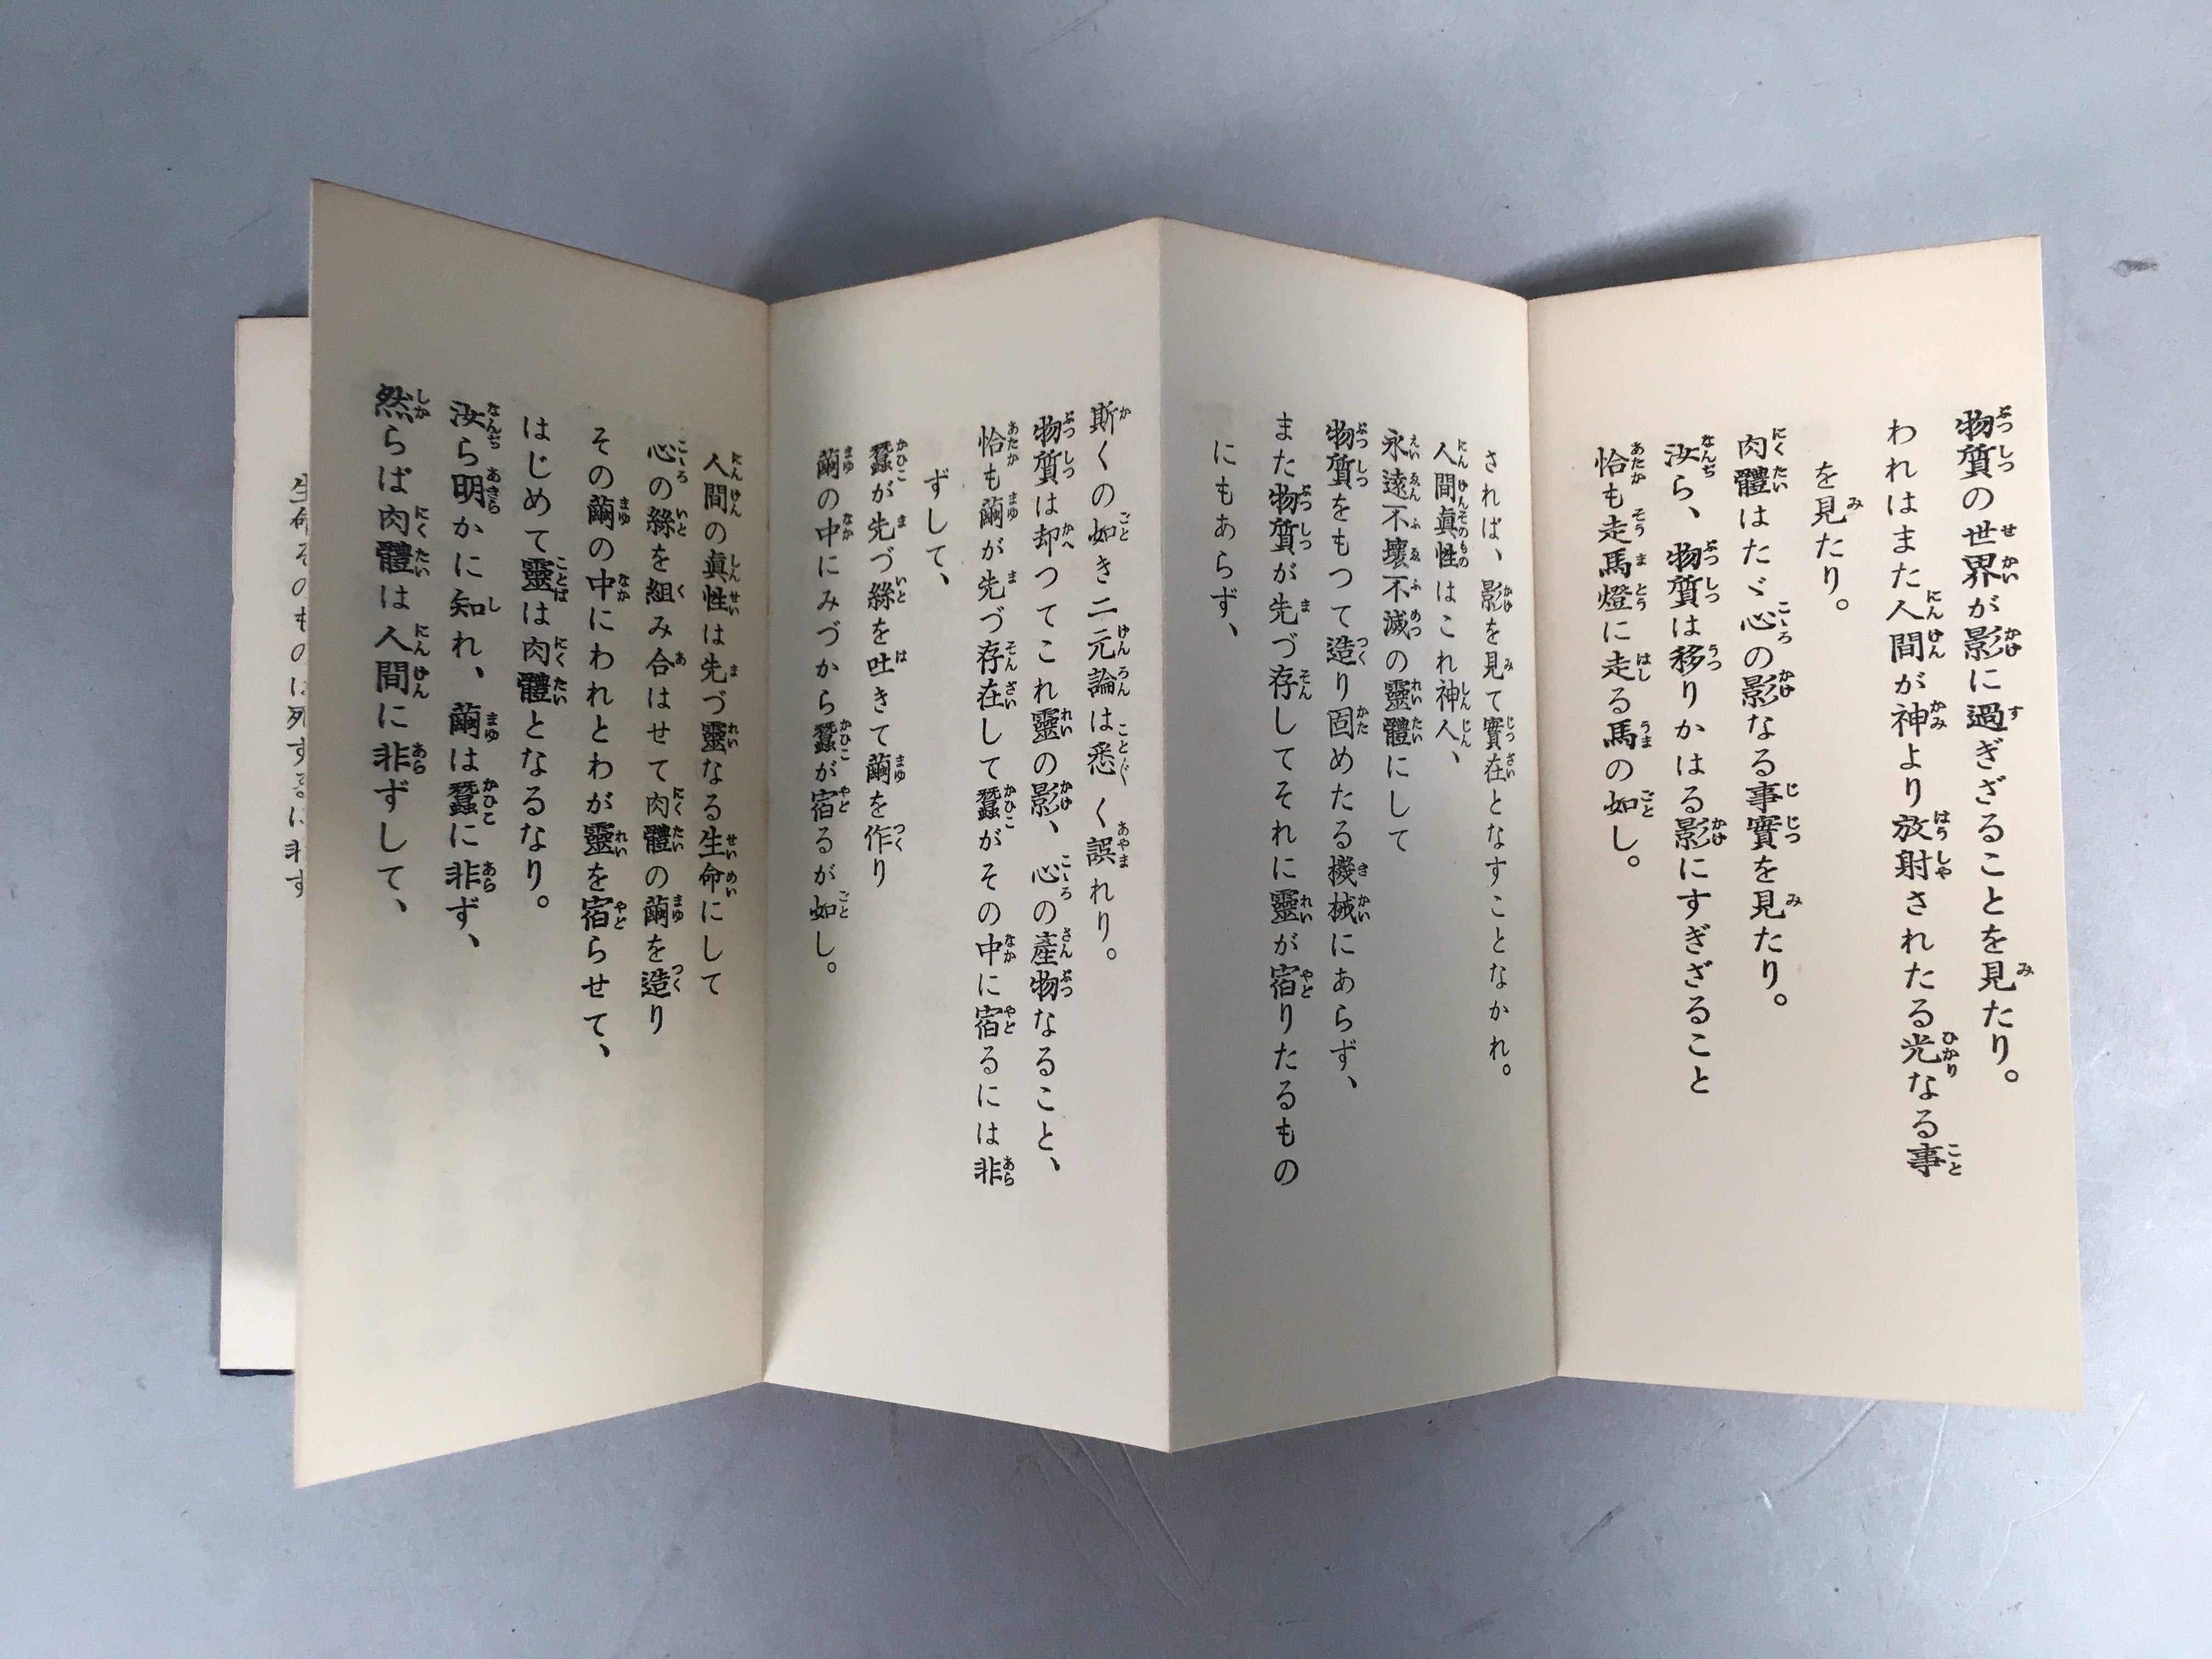 物質の世界が影に過ぎざることを見たり。
われはまた人間が神より放射されたる光なる事
を見たり。
肉體はたゞ心の影なる事實を見たり。
汝ら、物質は移りかはる影にすぎざること
恰も走馬燈に走る馬の如し。
されば、影を見て實在となすことなかれ。
人間眞性はこれ神人、
永遠不壞不滅の靈體にして
物質をもつて造り固めたる機械にあらず、
また物質が先づ存してそれに靈が宿りたるもの
にもあらず、
斯くの如き二元論は悉く誤れり。
物質は却つてこれ靈の影、心の産物なること、
恰も繭が先づ存在して蠶がその中に宿るには非
ずして、
蠶が先づ絲を吐きて繭を作り
繭の中にみづから蠶が宿るが如し。
人間の眞性は先づ靈なる生命にして
心の絲を組み合はせて肉體の繭を造り
その繭の中にわれとわが靈を宿らせて、
はじめて靈は肉體となるなり。
汝ら明かに知れ、繭は蠶に非ず、
然らば肉體は人間に非ずして、
生命そのものは死するに非ず